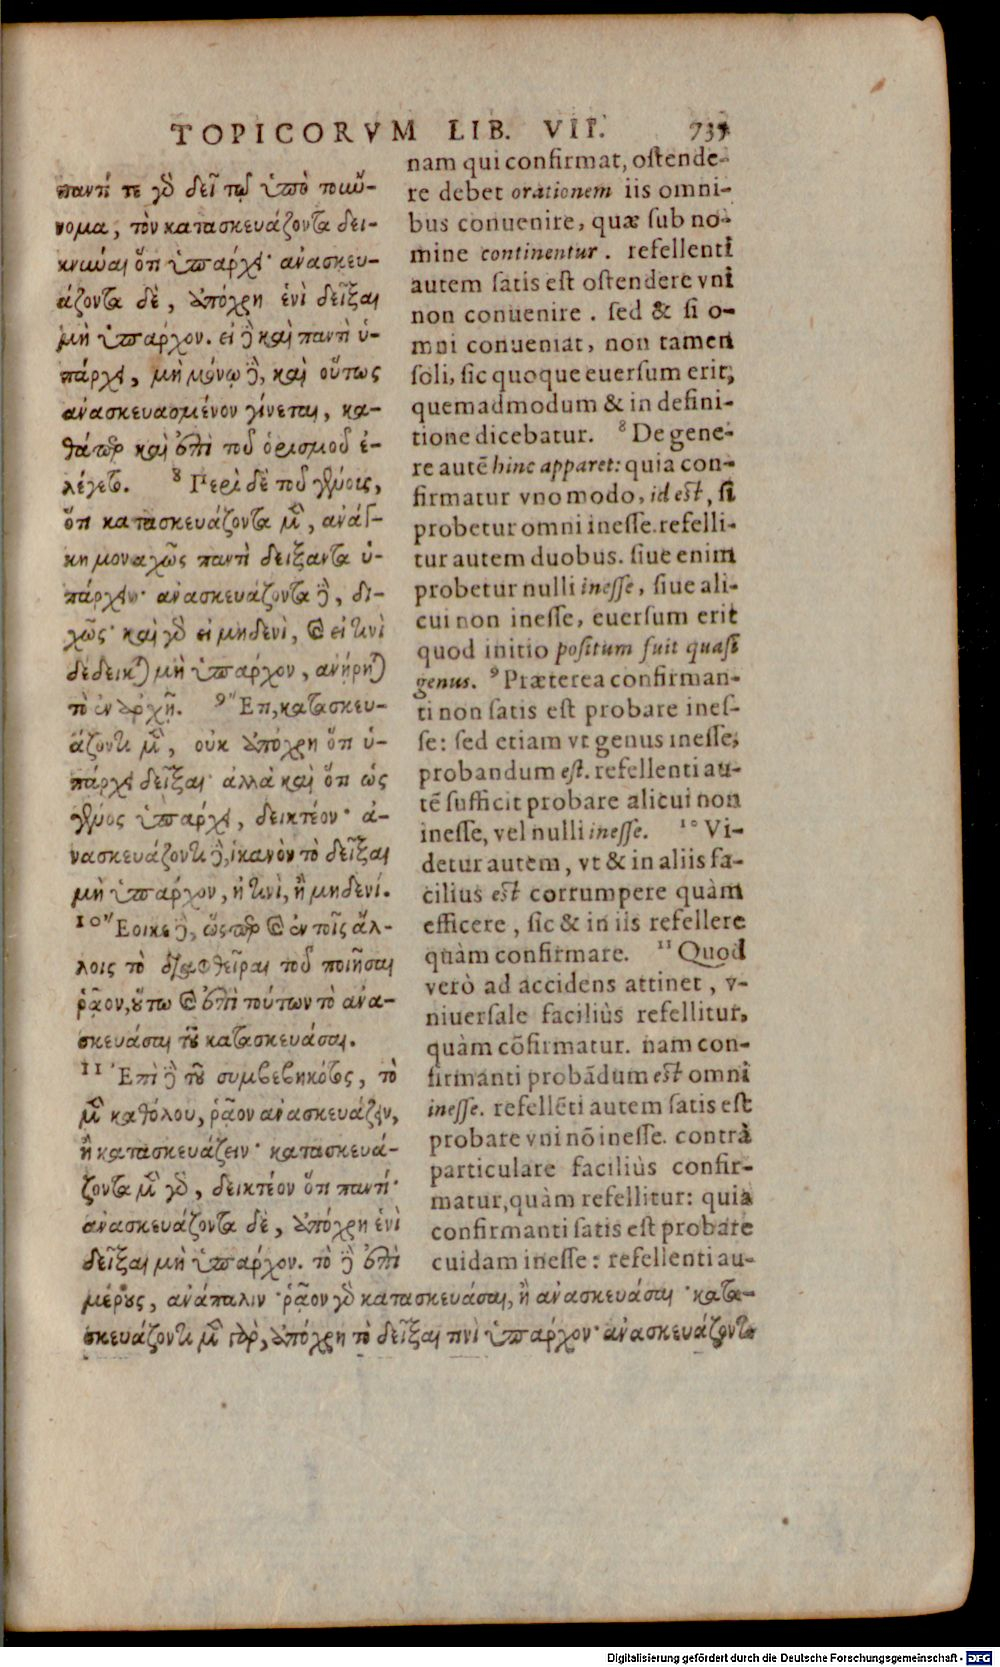 TOPICORVM LIB. VII. 735
παντί τε γὸ δεῖ τῷ ὑπὸ τοὔ-
νομα, τὸν κατασκευάζοντα δει-
κνύναι ὅτι ὑπάρχει· ἀνασκευ-
άζοντα δὲ, ἀπόχρη ἑνὶ δεῖξαι
μὴ ὑπάρχον. εἰ δὲ καὶ παντὶ ὑ-
πάρχει, μὴ μόνῳ δὲ, καὶ οὕτως
ἀνασκευασμένον γίνεται, κα-
θάπερ καὶ ἐπὶ τοῦ ὁρισμοῦ ἐ-
λέγετο. 8 Περὶ δὲ τοῦ γένοις,
ὅτι κατασκευάζοντα μὲν, ἀνάγ-
κη μοναχῶς παντὶ δείξαντα ὑ-
πάρχειν· ἀνασκευάζοντα δὲ, δι-
χῶς· καὶ γὸ εἰ μηδενὶ, καὶ εἰ τινὶ
δέδεικται μὴ ὑπάρχον, ἀνῄρηται
τὸ ἐν ἀρχῇ. 9 Ἔτι, κατασκευ-
άζοντι μὲν, οὐκ ἀπόχρη ὅτι ὑ-
πάρχει δεῖξαι· ἀλλὰ καὶ ὅτι ὡς
γένος ὑπάρχει, δεικτέον· ἀ-
νασκευάζοντι δὲ, ἱκανὸν τὸ δεῖξαι
μὴ ὑπάρχον, ἢ τινὶ, ἢ μηδενί.
10 Ἔοικε δὲ, ὥσπερ καὶ ἐν τοῖς ἄλ-
λοις τὸ διαφθεῖραι τοῦ ποιῆσαι
ῥᾷον, οὕτω καὶ ἐπὶ τούτων τὸ ἀνα-
σκευάσαι τοῦ κατασκευάσαι.
11 Ἐπὶ δὲ τοῦ συμβεβηκότος, τὸ
μὲν καθόλου, ῥᾷον ἀνασκευάζειν,
ἢ κατασκευάζειν· κατασκευά-
ζοντα μὲν γὸ, δεικτέον ὅτι παντί·
ἀνασκευάζοντα δὲ, ἀπόχρη ἑνὶ
δεῖξαι μὴ ὑπάρχον. τὸ δὲ ἐπὶ
μέρους, ἀνάπαλιν· ῥᾷον γὸ κατασκευάσαι, ἢ ἀνασκευάσαι· κατα-
σκευάζοντι μὲν γὸ, ἀπόχρη τὸ δεῖξαι τινὶ ὑπάρχον· ἀνασκευάζοντι
nam qui confirmat, ostende-
re debet orationem iis omni-
bus conuenire, quæ sub no-
mine continentur. refellenti
autem satis est ostendere vni
non conuenire. sed & si o-
mni conueniat, non tamen
soli, sic quoque euersum erit,
quemadmodum & in defini-
tione dicebatur. 8 De gene-
re autē hinc apparet: quia con-
firmatur vno modo, id est, si
probetur omni inesse. refelli-
tur autem duobus. siue enim
probetur nulli inesse, siue ali-
cui non inesse, euersum erit
quod initio positum fuit quasi
genus. 9 Præterea confirman-
ti non satis est probare ines-
se: sed etiam vt genus inesse,
probandum est. refellenti au-
tē sufficit probare alicui non
inesse, vel nulli inesse. 10 Vi-
detur autem, vt & in aliis fa-
cilius est corrumpere quàm
efficere, sic & in iis refellere
quàm confirmare. 11 Quod
verò ad accidens attinet, v-
niuersale faciliùs refellitur,
quàm cōfirmatur. nam con-
firmanti probādum est omni
inesse. refellēti autem satis est
probare vni nō inesse. contrà
particulare faciliùs confir-
matur, quàm refellitur: quia
confirmanti satis est probare
cuidam inesse: refellenti au-
Digitalisierung gefördert durch die Deutsche Forschungsgemeinschaft - DFG